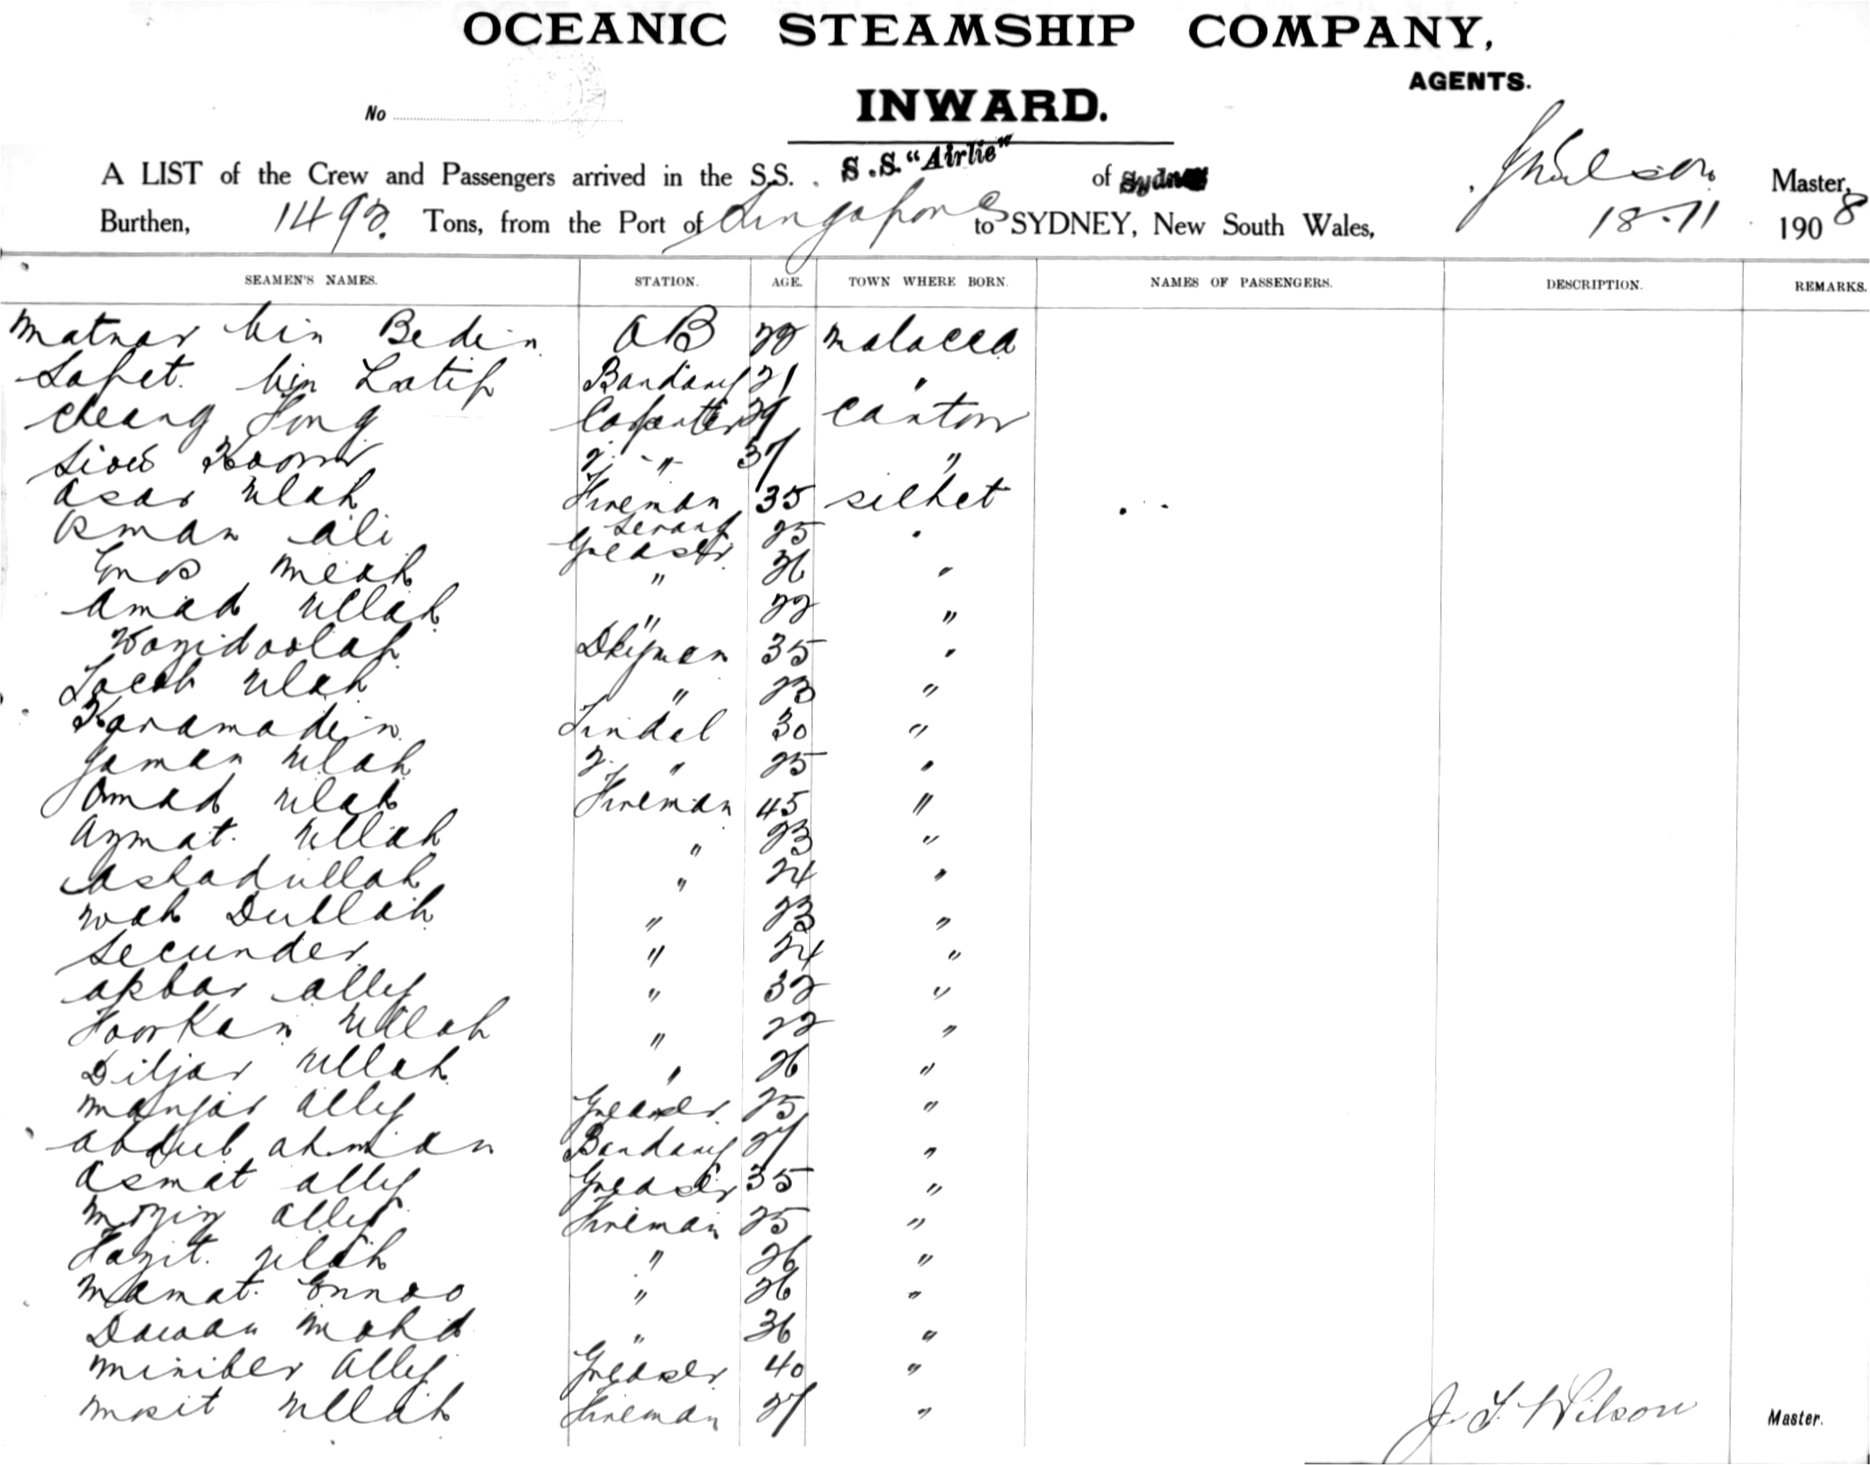 OCEANIC STEAMSHIP COMPANY,
AGENTS.
No
INWARD.
A LIST of the Crew and Passengers arrived in the S.S. S.S. "Airlie" of Sydney J Wilson Master,
Burthen, 1492 Tons, from the Port of Singapore to SYDNEY, New South Wales, 18-11 1908
SEAMEN'S NAMES. STATION. AGE. TOWN WHERE BORN. NAMES OF PASSENGERS. DESCRIPTION. REMARKS.
Matnar bin Bedin AB 22 Malacca
Sapet. bin Latip 21 "
Cheang Hong Carpenter 29 Canton
2. " 37 "
Asar Ulah Fireman Serang 35 Silhet
Osman Ali Greaser 25 "
Meah " 26 "
Amad Ullah " 22 "
35 "
Ulah " 23 "
Karamadin Tindal 30 "
Jaman Ulah 2. " 25 "
Omad Ulah Fireman 45 "
Azmat. Ullah " 23 "
Ashadullah " 24 "
Wah Dullah " 23 "
Secunder " 24 "
Akbar Ally " 32 "
Foorkan Ullah " 22 "
Diljar Ullah " 26 "
Manjar Ally Greaser 25 "
Abdul Ahman 27 "
Asmat Ally Greaser 35 "
Mozir Ally Fireman 25 "
Hazit. Ulah " 26 "
Mamat. Ennoo " 26 "
Dawan Mohd " 36 "
Ally Greaser 40 "
Mosit Ullah Fireman 27 "
J. T. Wilson Master.